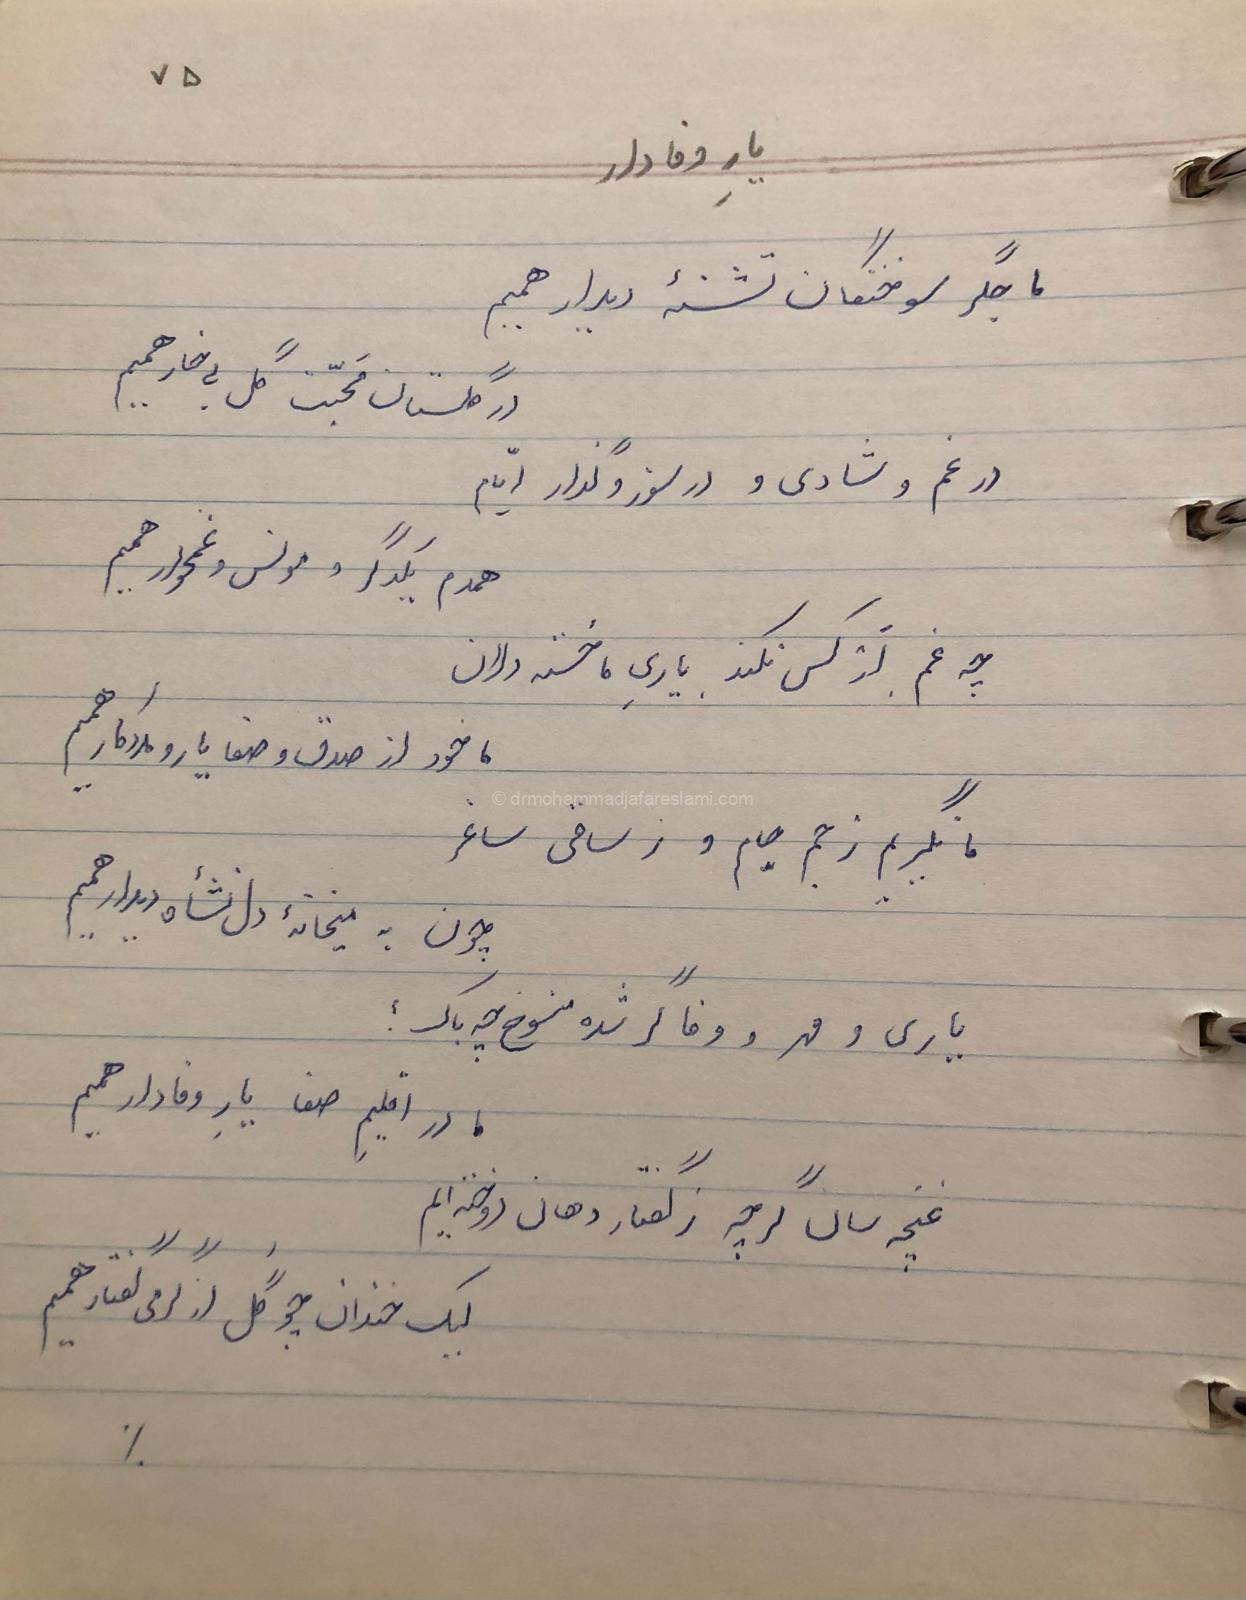 ۷۵
یارِ وفادار
ما جگر سوختگان تشنهٔ دیدار همیم
در گلستان مَحبّت گل بی خار همیم
در غم و شادی و در سوز و گداز ایّام
همدم یکدگر و مونس و غمخوار همیم
چه غم ار کس نکند یاریِ ما خسته دلان
ما خود از صدق و صفا یار و مددکار همیم
ما نگیریم ز جم جام و ز ساقی ساغر
چون به میخانهٔ دل نشأه دیدار همیم
یاری و مهر و وفا گر شده منسوخ چه باک؛
ما در اقلیمِ صفا یارِ وفادار همیم
غنچه سان گرچه ز گفتار دهان دوخته ایم
لیک خندان چو گُل از گرمی گفتار همیم
٪
© drmohammadjafareslami.com